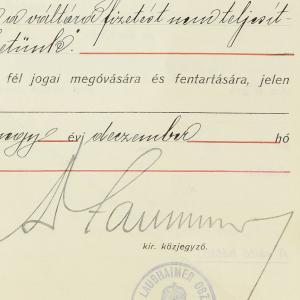 a váltóra fizetést nem teljesít-
etünk".
fél jogai megóvására és fentartására, jelen
négy évi deczember hó
kir. közjegyző.
LAUBHAIMER OSZ